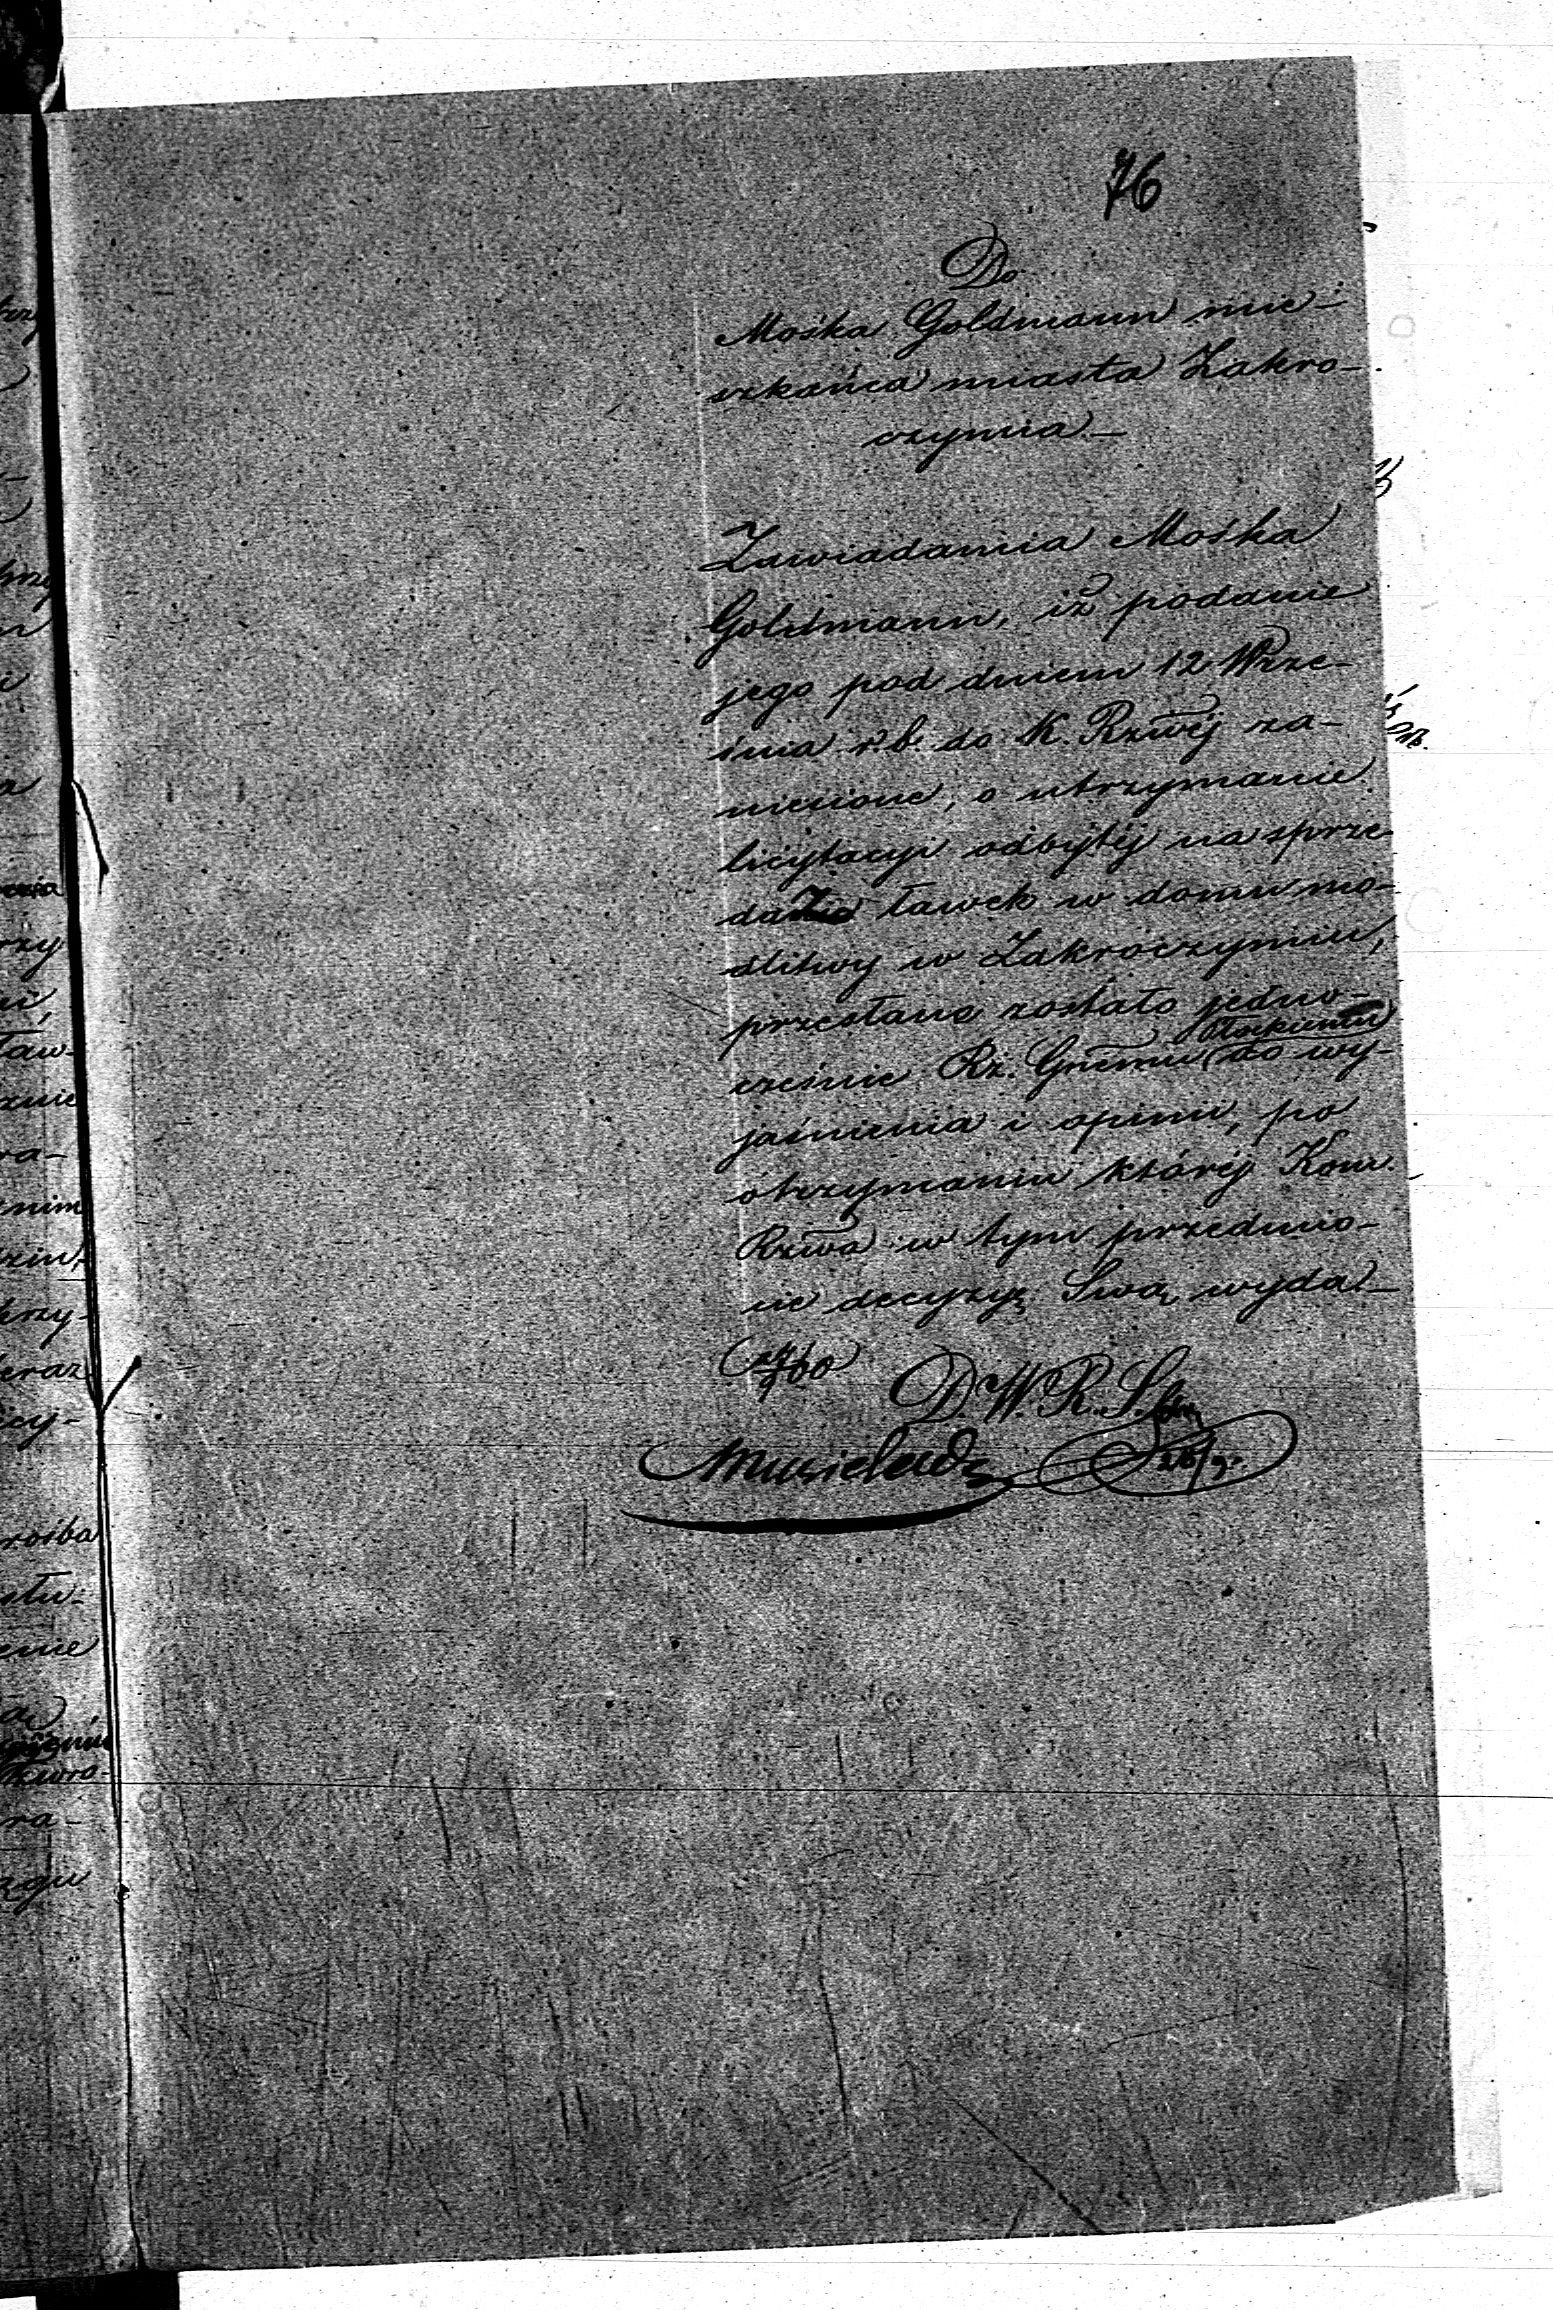 76
Do
Mośka Goldmann mie-
szkańca miasta Zakro-
czymia.—
Zawiadamia Mośka
Goldmann, iż podanie
jego pod dniem 12 Wrze-
śnia r. b. do K. Rzwéj za-
niesione, o utrzymanie
licytacyi odbytéj na sprze-
daż ławek w domu mo-
dlitwy w Zakroczymiu,
przesłane zostało jedno-
cześnie Rz. Gnemu Płockiemu do wy-
jaśnienia i opinii, po
otrzymaniu któréj Kom.
Rzwa w tym przedmio-
cie decyzyę Swą wyda.—
D. W. R. S.